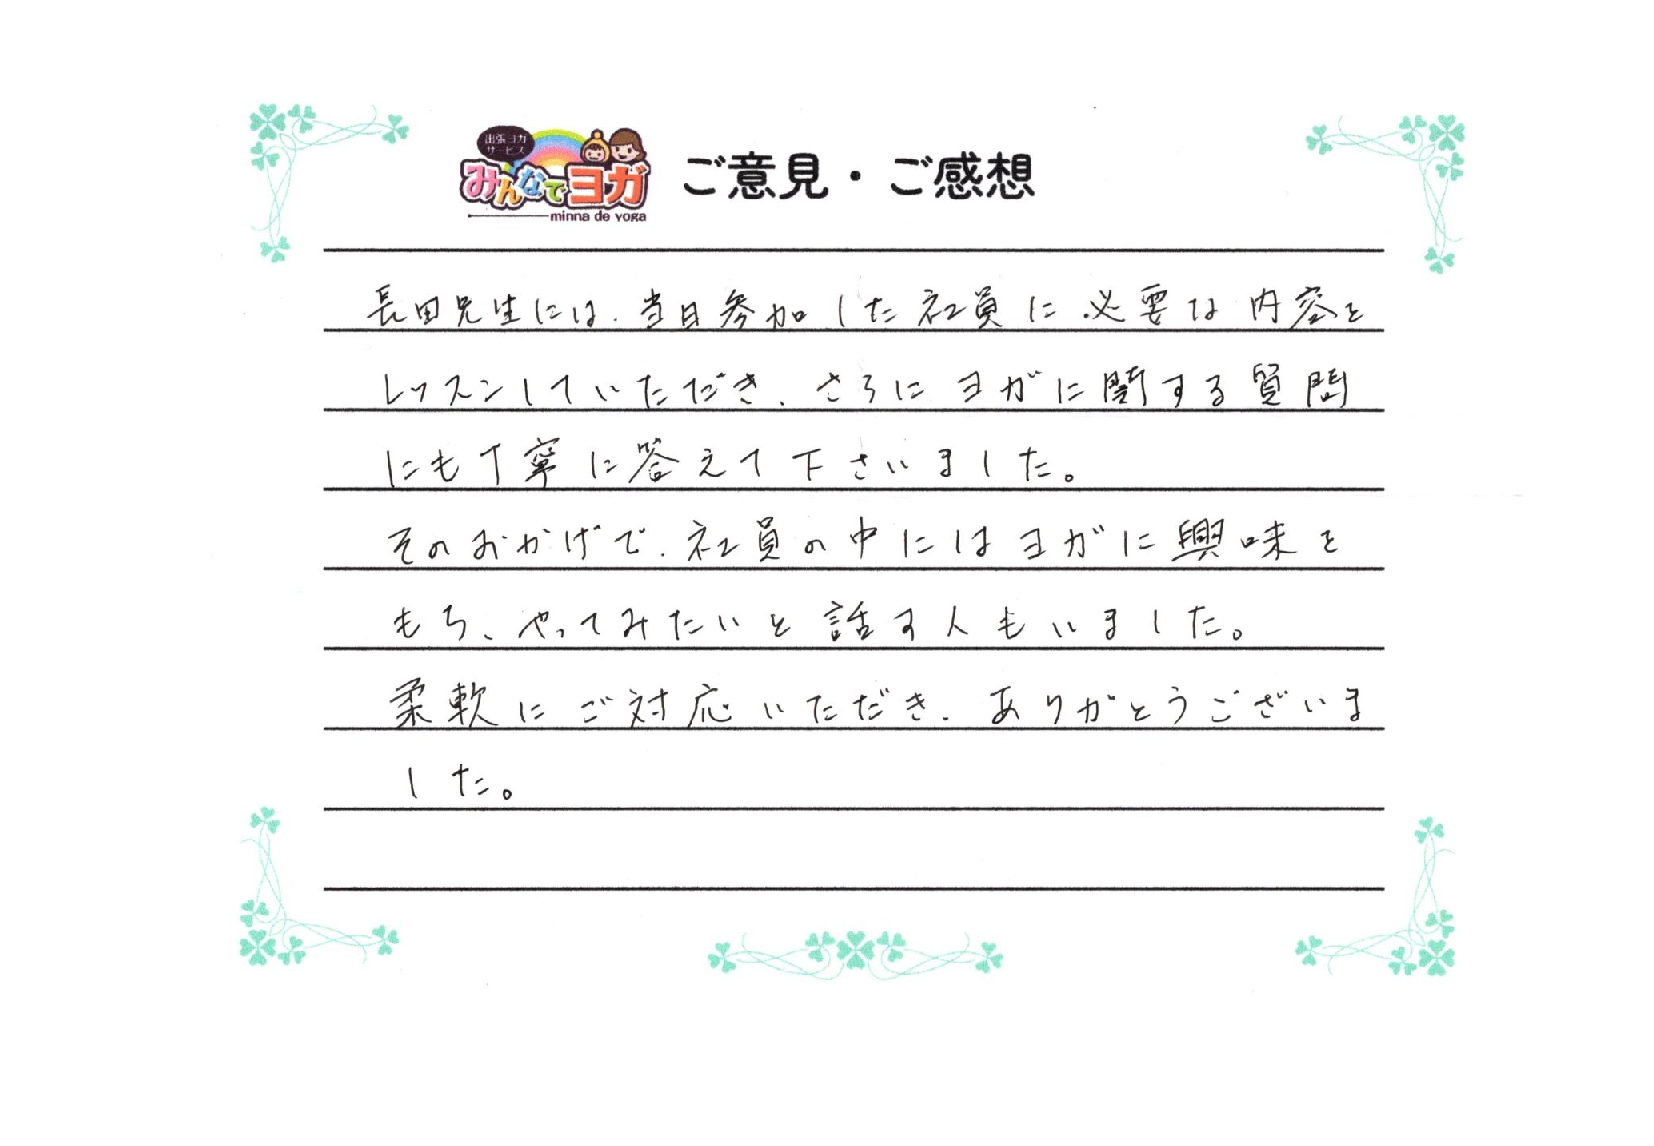 出張ヨガ
サービス
みんなでヨガ
minna de yoga
ご意見・ご感想
長田先生には、当日参加した社員に必要な内容を
レッスンしていただき、さらにヨガに関する質問
にも丁寧に答えて下さいました。
そのおかげで、社員の中にはヨガに興味を
もち、やってみたいと話す人もいました。
柔軟にご対応いただき、ありがとうございま
した。